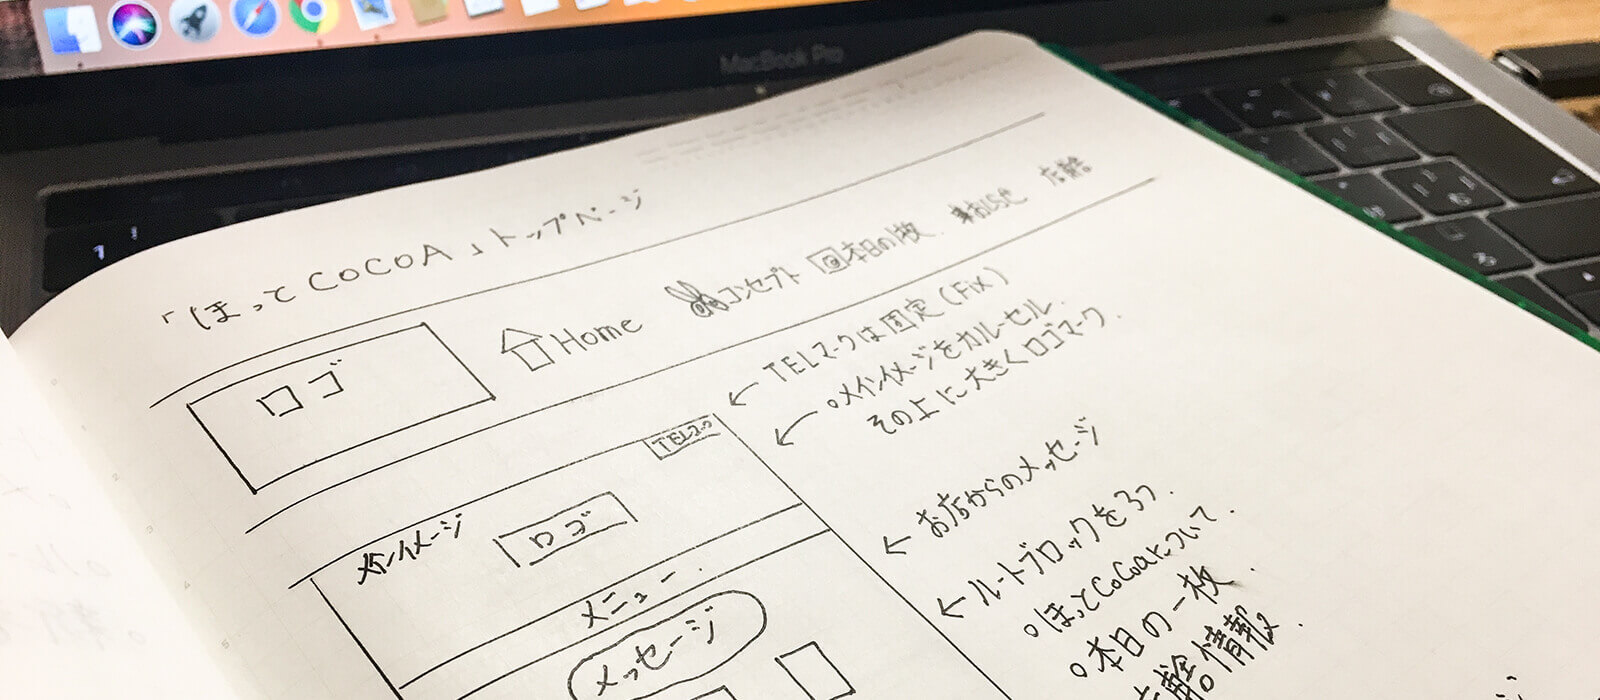 MacBook Pro
「ほっとCOCOA」トップページ
ロゴ
Home
コンセプト
本日の1枚
TELマークは固定(Fix)
メインイメージをカルーセル
その上に大きくロゴマーク.
TELマーク
メインイメージ
ロゴ
お店からのメッセージ
メニュー
ルートブロックを3つ.
メッセージ
ほっとCoCoaについて.
本日の一枚.
情報.